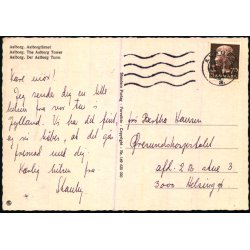 Aalborg. Aalborgtårnet
Aalborg. The Aalborg Tower
Aalborg. Der Aalborg Turm
Kære mor!
Jeg sender dig en lille
hilsen fra vor tur i
Jylland. Vi har det fint
og vi håber, at det går
fremad med dig.
Kærlig hilsen fra
DANMARK
fru Bertha Hansen
Øresundshospitalet
afd. 2 B. stue 3
3000 Helsingør